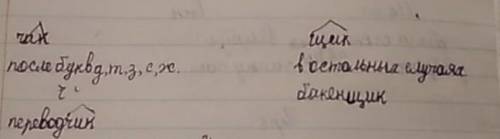 чик
щик
после букв д, т, з, с, ж.
в остальных случаях
ч
баkенщик
переводчик